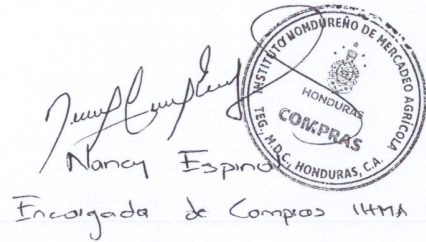 INSTITUTO HONDUREÑO DE MERCADEO AGRÍCOLA
HONDURAS
COMPRAS
TEG., M.D.C., HONDURAS, C.A.
Nancy Espinol
Encargada de Compras IHMA